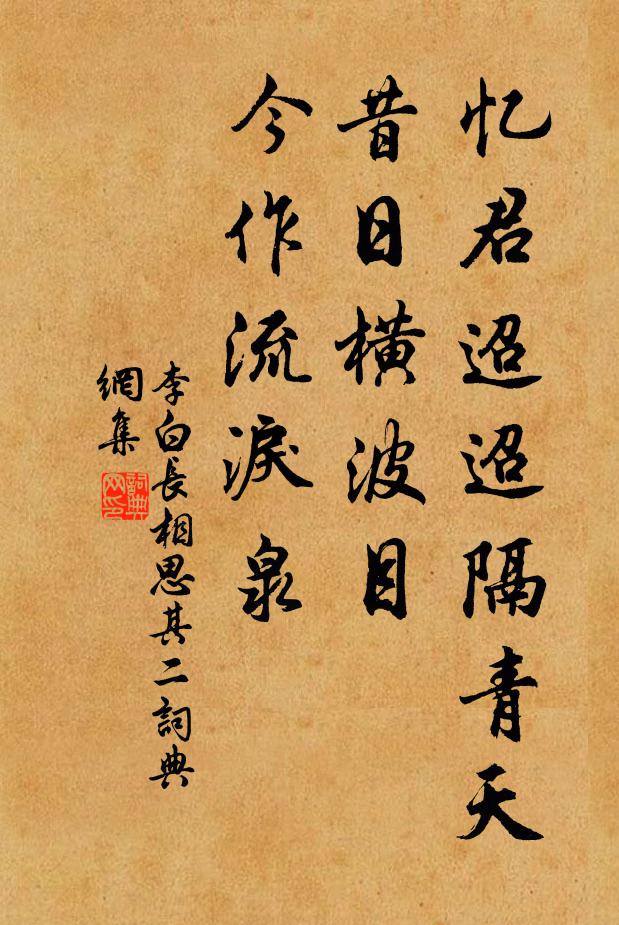 忆君迢迢隔青天
昔日横波目
今作流淚泉
李白長相思其二詞典
網集
詞典
网印